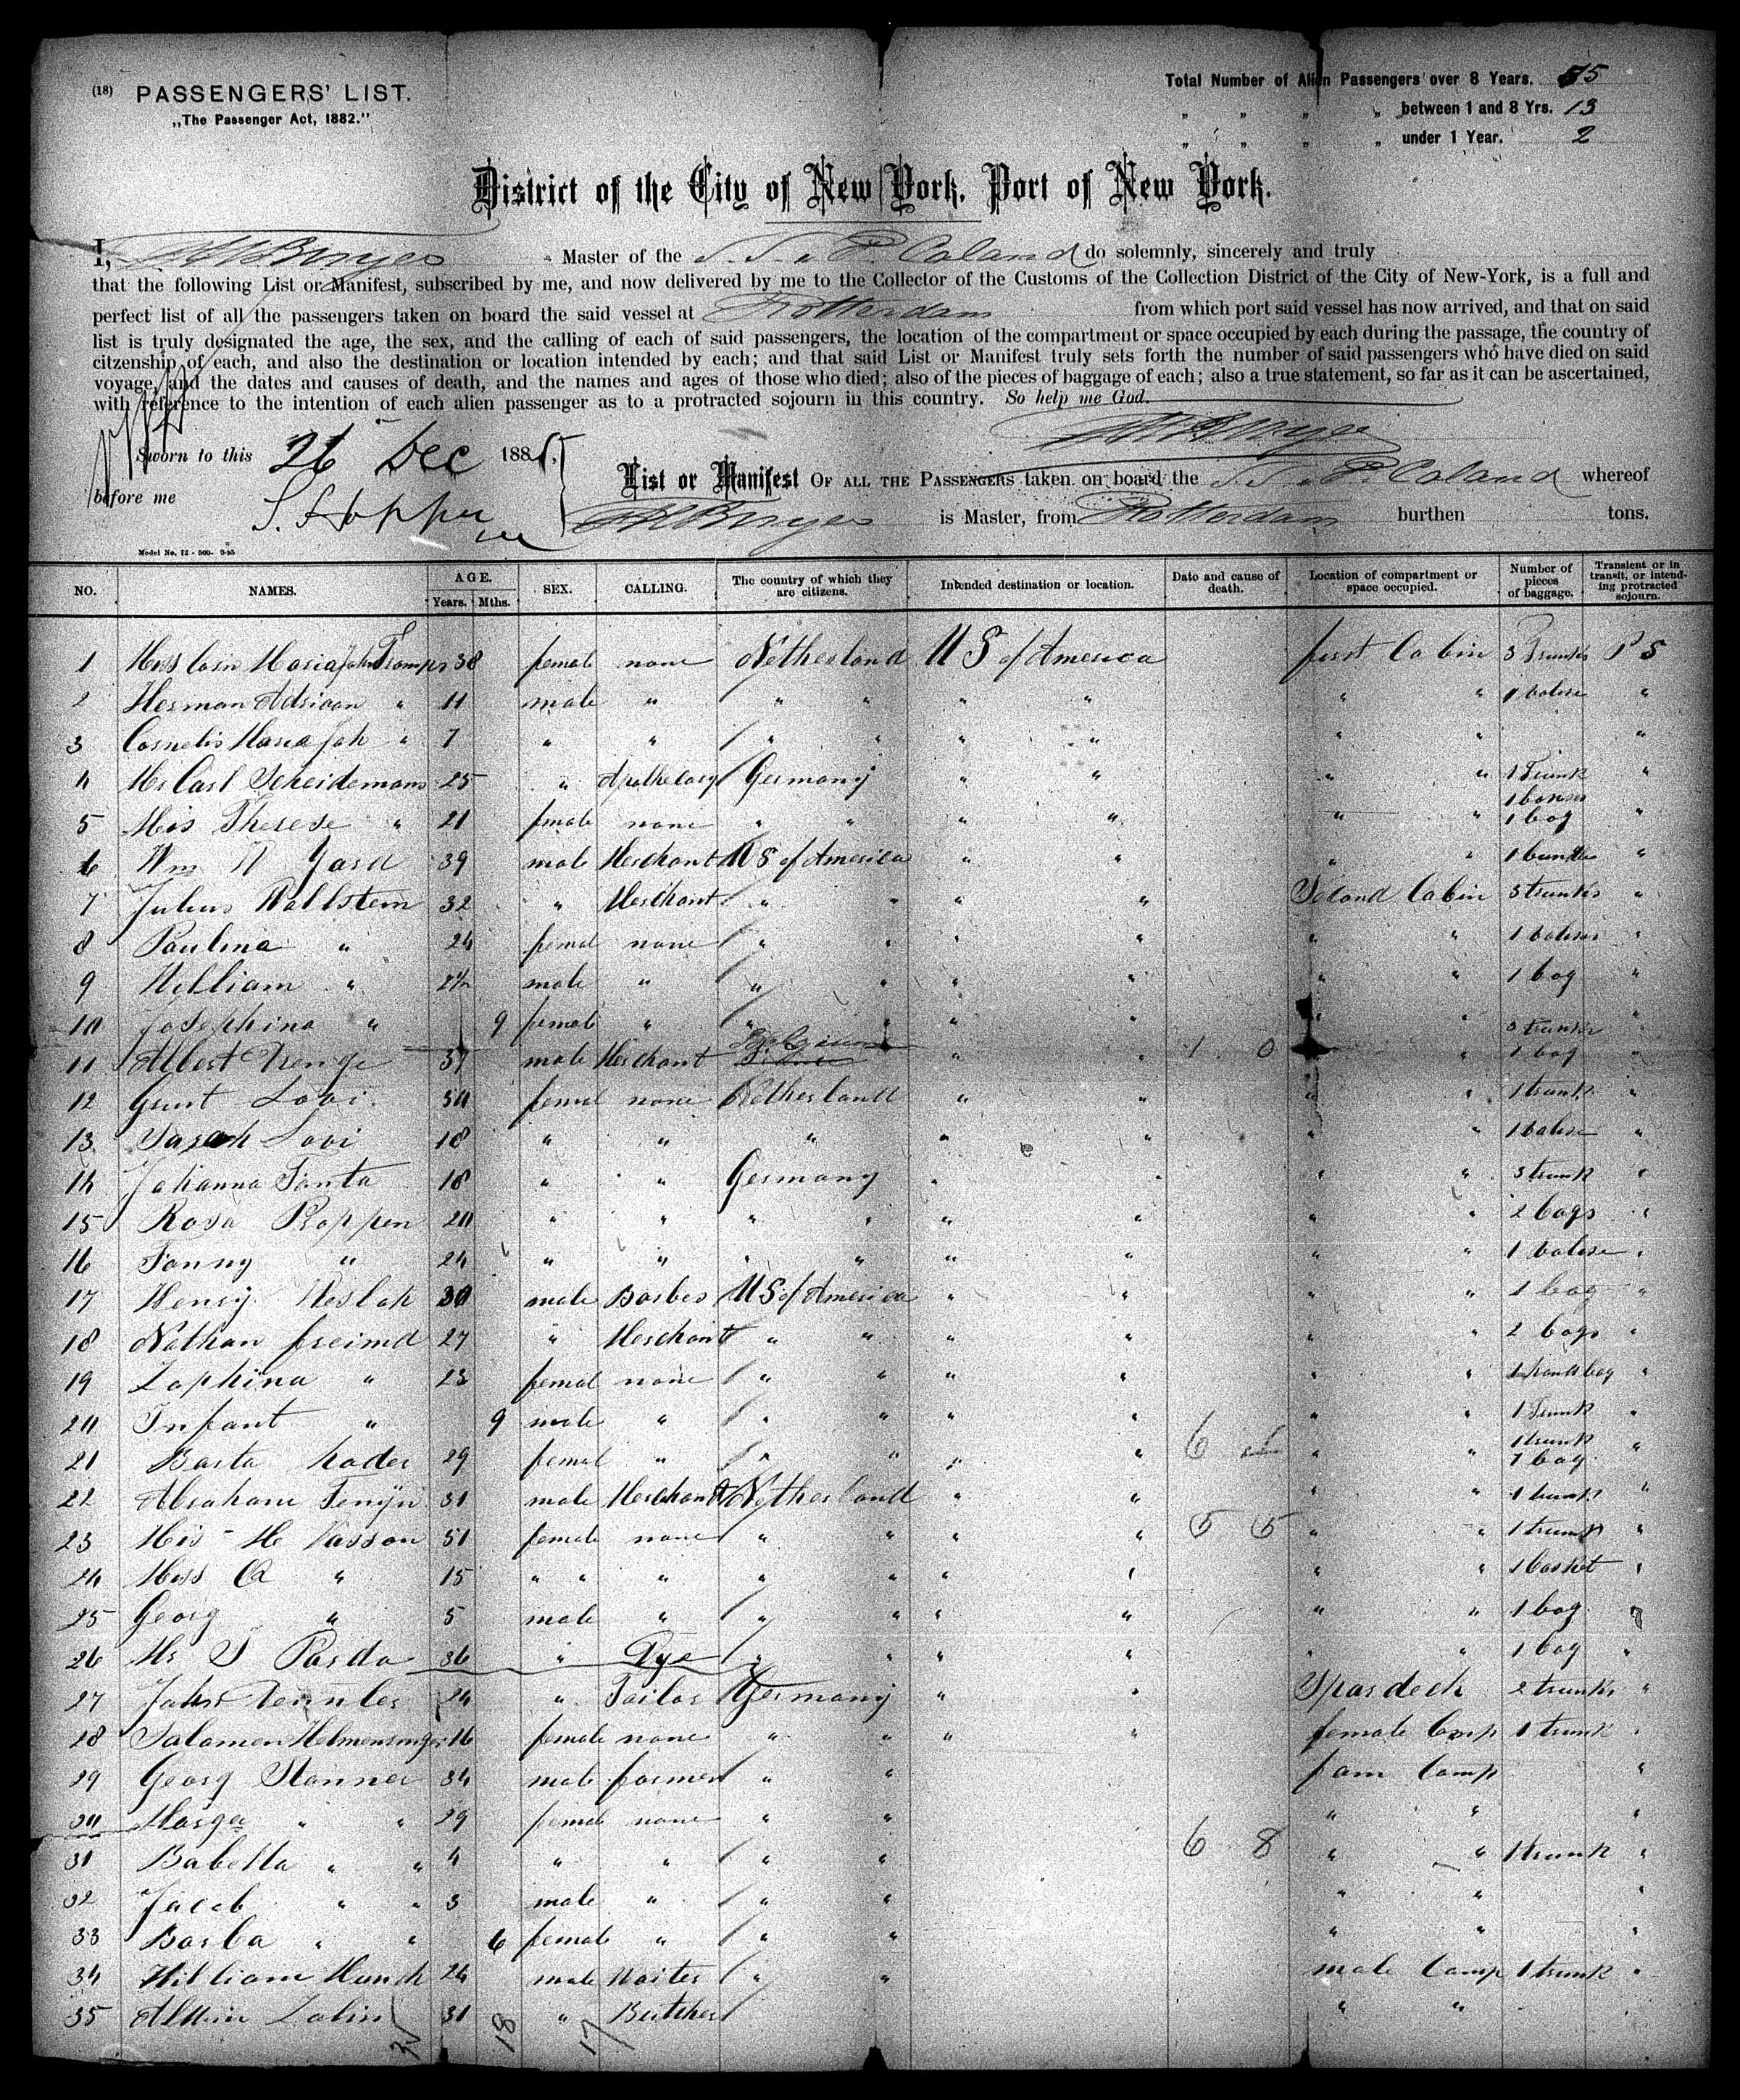 (18) PASSENGERS' LIST.
„The Passenger Act, 1882."
Total Number of Alien Passengers over 8 Years. 55
„ „ „ „ between 1 and 8 Yrs. 13
„ „ „ „ under 1 Year. 2
District of the City of New York, Port of New York.
I, Master of the S.S. P. Caland do solemnly, sincerely and truly
that the following List or Manifest, subscribed by me, and now delivered by me to the Collector of the Customs of the Collection District of the City of New-York, is a full and
perfect list of all the passengers taken on board the said vessel at Rotterdam from which port said vessel has now arrived, and that on said
list is truly designated the age, the sex, and the calling of each of said passengers, the location of the compartment or space occupied by each during the passage, the country of
citzenship of each, and also the destination or location intended by each; and that said List or Manifest truly sets forth the number of said passengers who have died on said
voyage, and the dates and causes of death, and the names and ages of those who died; also of the pieces of baggage of each; also a true statement, so far as it can be ascertained,
with reference to the intention of each alien passenger as to a protracted sojourn in this country. So help me God.
Sworn to this 26 Dec 1885,
before me
List or Manifest OF ALL THE PASSENGERS taken on board the S.S. P. Caland whereof
is Master, from Rotterdam burthen tons.
Model No. 12 - 500- 9-85
NO. NAMES. AGE. Years. Mths. SEX. CALLING. The country of which they are citizens. Intended destination or location. Date and cause of death. Location of compartment or space occupied. Number of pieces of baggage. Transient or in transit, or intending protracted sojourn.
1 Maria Joh 38 female none Netherland U S of America first Cabin 3 Trunks P S
2 Herman Adriaan " 11 male " " " " " " " 1 valise "
3 Cornelis Maria Joh " 7 " " " " " " " " "
4 Mr Carl Scheidemann 25 " Apothecary Germany " " " " 1 Trunk "
5 Mrs Therese " 21 female none " " " " " " 1 bag "
6 Wm N Yard 39 male Merchant U S of America " " " " 1 bundle "
7 Julius Wallstein 32 " Merchant " " " " Second Cabin 3 trunks "
8 Paulina " 24 femal none " " " " " " 1 valise "
9 William " 2½ male " " " " " " " 1 bag "
10 Josephina " 9 femal " " " " " " " "
11 Albert 37 male Merchant Belgium " " 1 0 " 3 trunks 1 bag "
12 Lovi 50 femal none Netherland " " " " 1 trunk "
13 Sarah Lovi 18 " " " " " " " 1 valise "
14 Johanna Santa 18 " " Germany " " " " 3 trunk "
15 Rosa Poppen 20 " " " " " " " 2 bags "
16 Fanny " 24 " " " " " " " " 1 valise "
17 Henry 30 male Barber U S of America " " " " 1 bag "
18 Nathan freund 27 " Merchant " " " " " " 2 bags "
19 Zophina " 23 femal none " " " " " " 1 handbag "
20 Infant " 9 male " " " " " " " 1 Trunk "
21 29 femal " " " " " 6 " " 1 trunk 1 bag "
22 Abraham 31 male Merchant Netherland " " " " 1 trunk "
23 Mrs M Vasson 51 female none " " " " 5 5 " " 1 trunk "
24 Miss " 15 " " " " " " " " " 1 basket "
25 Georg " 5 male " " " " " " " 1 bag "
26 Mr S Parda 36 " " " " " " " 1 bag "
27 John 24 " Tailor Germany " " Spardeck 2 trunks "
28 16 female none " " " " female Comp 1 trunk "
29 Georg 34 male farmer " " fam Comp "
30 Marga " " 29 femal none " " " " "
31 Babetta " " 4 " " " " 6 8 " " 1 trunk "
32 Jacob " " 3 male " " " " " "
33 Barba " " 6 female " " " " " "
34 William Hunch 24 male Waiter " " male Comp 1 trunk "
35 31 " Butcher " "
18 17